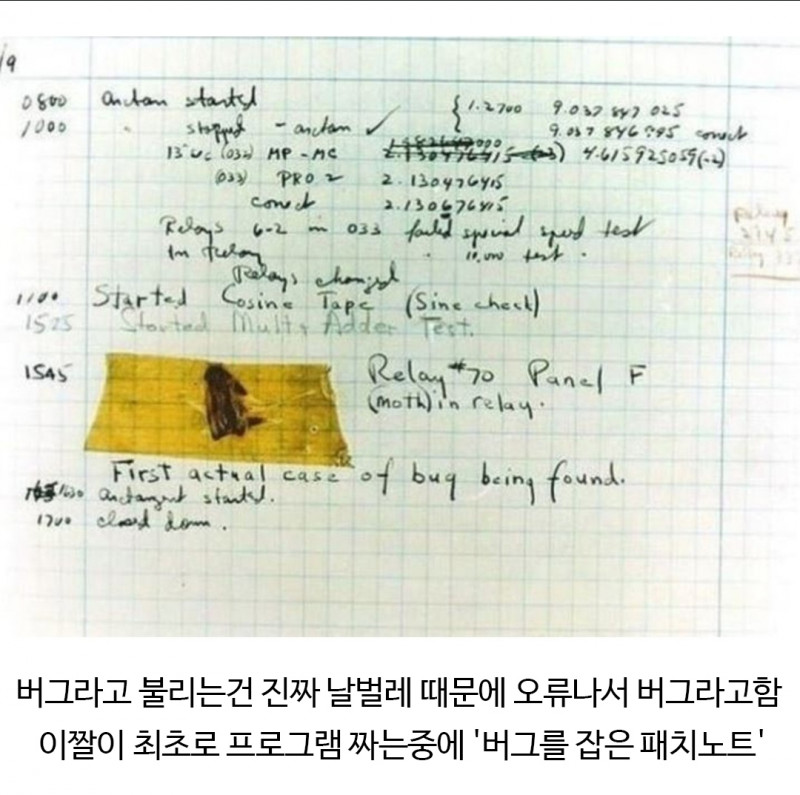 /9
0800 Arctan started { 1.2700 9.037 847 025
1000 " stopped - arctan ✓ 9.037 846 995 correct
13"uc (032) MP - MC 2.130476415 4.615925059(-2)
(033) PRO 2 2.130476415
correct 2.130676415
Relays 6-2 in 033 failed special speed test
In Relay " 10,000 test .
Relays changed
1100 Started Cosine Tape (Sine check)
1525 Started Mult + Adder Test.
1545 Relay #70 Panel F
(moth) in relay.
First actual case of bug being found.
1630 arctangent started.
1700 closed down .
버그라고 불리는건 진짜 날벌레 때문에 오류나서 버그라고함
이짤이 최초로 프로그램 짜는중에 '버그를 잡은 패치노트'